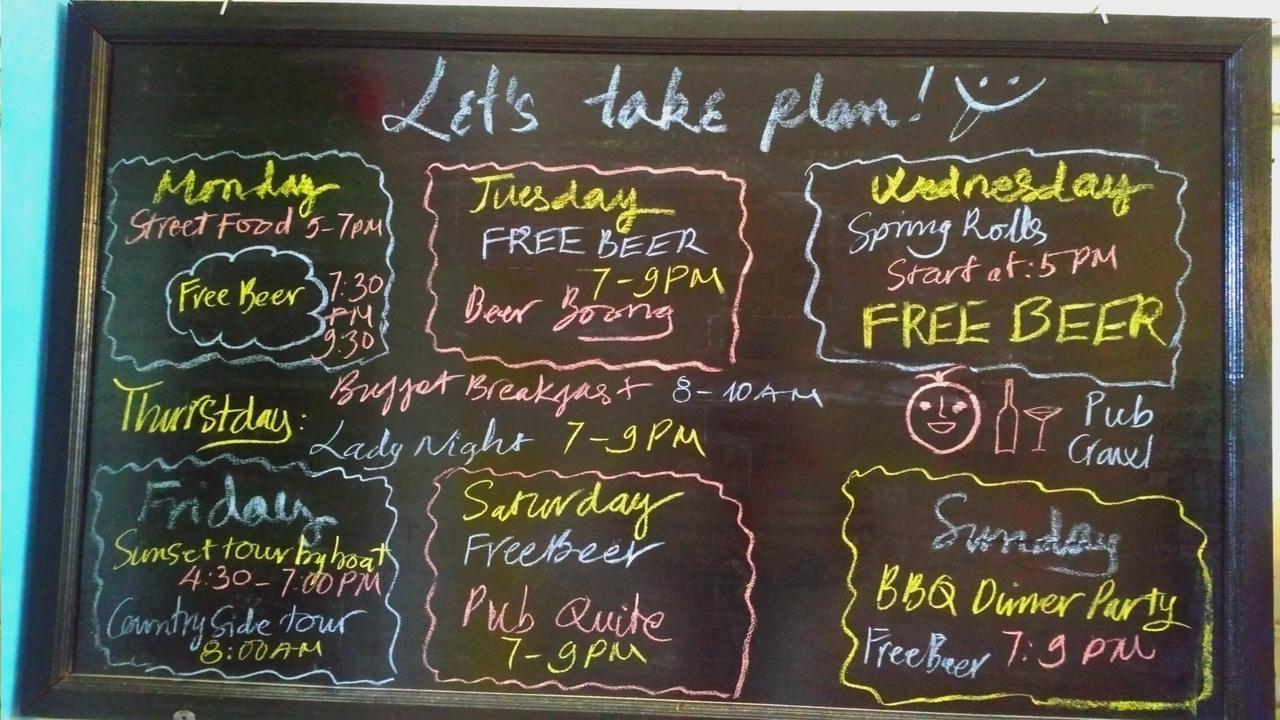 Let's take plan!
Monday
Street Food 5-7PM
Free Beer
7:30
PM
9:30
Tuesday
FREE BEER
7-9PM
Beer Boong
Wednesday
Spring Rolls
Start at: 5 PM
FREE BEER
Buffet Breakfast 8-10AM
Thurstday:
Lady Night 7-9PM
Pub
Crawl
Friday
Sunset tour by boat
4:30-7:00PM
Country Side tour
8:00AM
Saturday
Free Beer
Pub Quite
7-9PM
Sunday
BBQ Dinner Party
Free Beer 7:9 PM